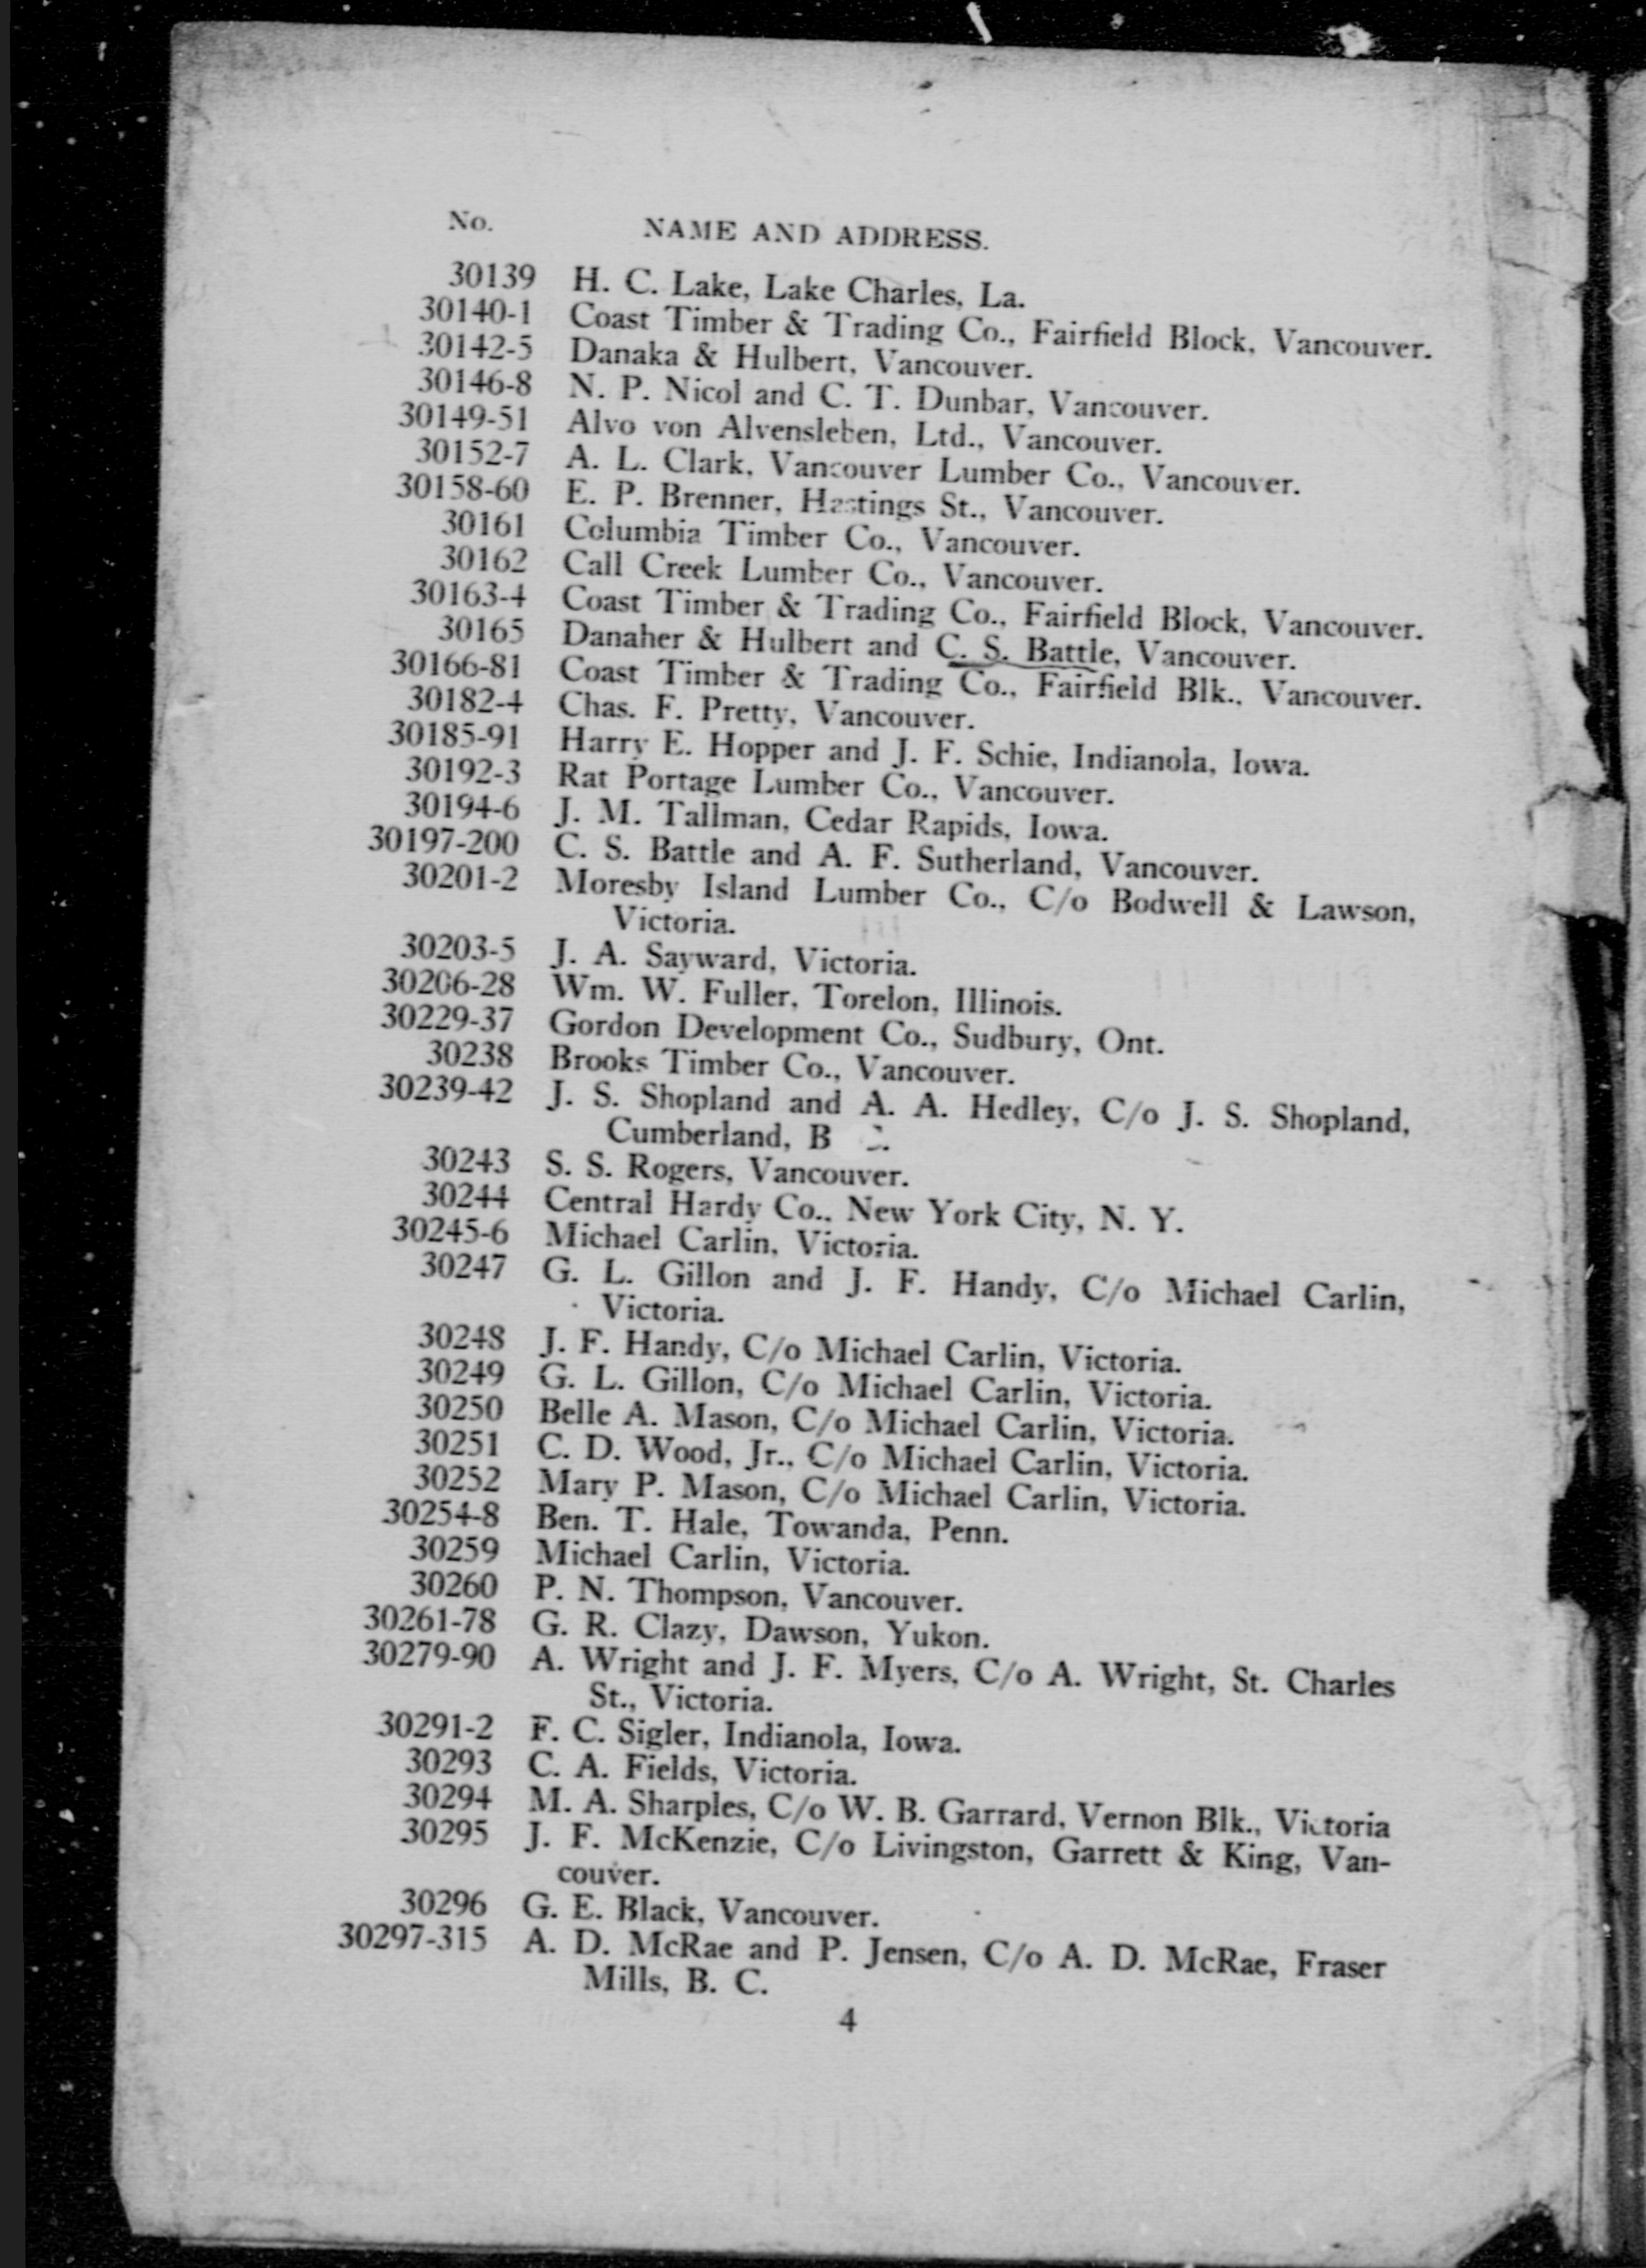 No. NAME AND ADDRESS.
30139 H. C. Lake, Lake Charles, La.
30140-1 Coast Timber & Trading Co., Fairfield Block, Vancouver.
30142-5 Danaka & Hulbert, Vancouver.
30146-8 N. P. Nicol and C. T. Dunbar, Vancouver.
30149-51 Alvo von Alvensleben, Ltd., Vancouver.
30152-7 A. L. Clark, Vancouver Lumber Co., Vancouver.
30158-60 E. P. Brenner, Hastings St., Vancouver.
30161 Columbia Timber Co., Vancouver.
30162 Call Creek Lumber Co., Vancouver.
30163-4 Coast Timber & Trading Co., Fairfield Block, Vancouver.
30165 Danaher & Hulbert and C. S. Battle, Vancouver.
30166-81 Coast Timber & Trading Co., Fairfield Blk., Vancouver.
30182-4 Chas. F. Pretty, Vancouver.
30185-91 Harry E. Hopper and J. F. Schie, Indianola, Iowa.
30192-3 Rat Portage Lumber Co., Vancouver.
30194-6 J. M. Tallman, Cedar Rapids, Iowa.
30197-200 C. S. Battle and A. F. Sutherland, Vancouver.
30201-2 Moresby Island Lumber Co., C/o Bodwell & Lawson,
Victoria.
30203-5 J. A. Sayward, Victoria.
30206-28 Wm. W. Fuller, Torelon, Illinois.
30229-37 Gordon Development Co., Sudbury, Ont.
30238 Brooks Timber Co., Vancouver.
30239-42 J. S. Shopland and A. A. Hedley, C/o J. S. Shopland,
Cumberland, B C.
30243 S. S. Rogers, Vancouver.
30244 Central Hardy Co., New York City, N. Y.
30245-6 Michael Carlin, Victoria.
30247 G. L. Gillon and J. F. Handy, C/o Michael Carlin,
Victoria.
30248 J. F. Handy, C/o Michael Carlin, Victoria.
30249 G. L. Gillon, C/o Michael Carlin, Victoria.
30250 Belle A. Mason, C/o Michael Carlin, Victoria.
30251 C. D. Wood, Jr., C/o Michael Carlin, Victoria.
30252 Mary P. Mason, C/o Michael Carlin, Victoria.
30254-8 Ben. T. Hale, Towanda, Penn.
30259 Michael Carlin, Victoria.
30260 P. N. Thompson, Vancouver.
30261-78 G. R. Clazy, Dawson, Yukon.
30279-90 A. Wright and J. F. Myers, C/o A. Wright, St. Charles
St., Victoria.
30291-2 F. C. Sigler, Indianola, Iowa.
30293 C. A. Fields, Victoria.
30294 M. A. Sharples, C/o W. B. Garrard, Vernon Blk., Victoria
30295 J. F. McKenzie, C/o Livingston, Garrett & King, Van-
couver.
30296 G. E. Black, Vancouver.
30297-315 A. D. McRae and P. Jensen, C/o A. D. McRae, Fraser
Mills, B. C.
4